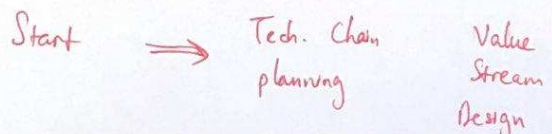 Start
Tech. Chain
planning
Value
Stream
Design